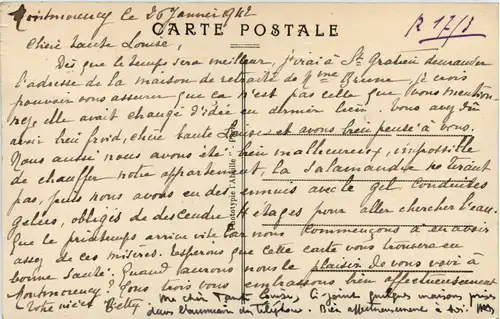 Montmorency le 26 Janvier 1942
R 17/3
CARTE POSTALE
Chère tante Louise,
Dès que le temps sera meilleur, j'irai à St Gratien demander
l'adresse de la maison de retraite de Mme Brune, je crois
pouvoir vous assurer que ce n'est pas celle que vous
elle avait changé d'idée en dernier lieu. Vous avez dû
avoir bien froid, chère tante Louise et avons bien pensé à vous.
Nous aussi nous avons été bien malheureux, impossible
de chauffer notre appartement, la Salamandre ne tirait
pas, puis nous avons eu des ennuis avec le gel, conduites
gelées, obligés de descendre 4 étages pour aller chercher l'eau.
Que le printemps arrive vite car nous commençons à en avoir
assez de ces misères. Espérons que cette carte vous trouvera en
bonne santé. Quand aurons nous le plaisir de vous voir à
Montmorency? Tous trois vous embrassons bien affectueusement
Votre nièce Betty
Ma chère Tante Louise, ci joint quelques
dans l'annuaire du téléphone. Bien affectueusement à toi.
Phototypie l'Abeille